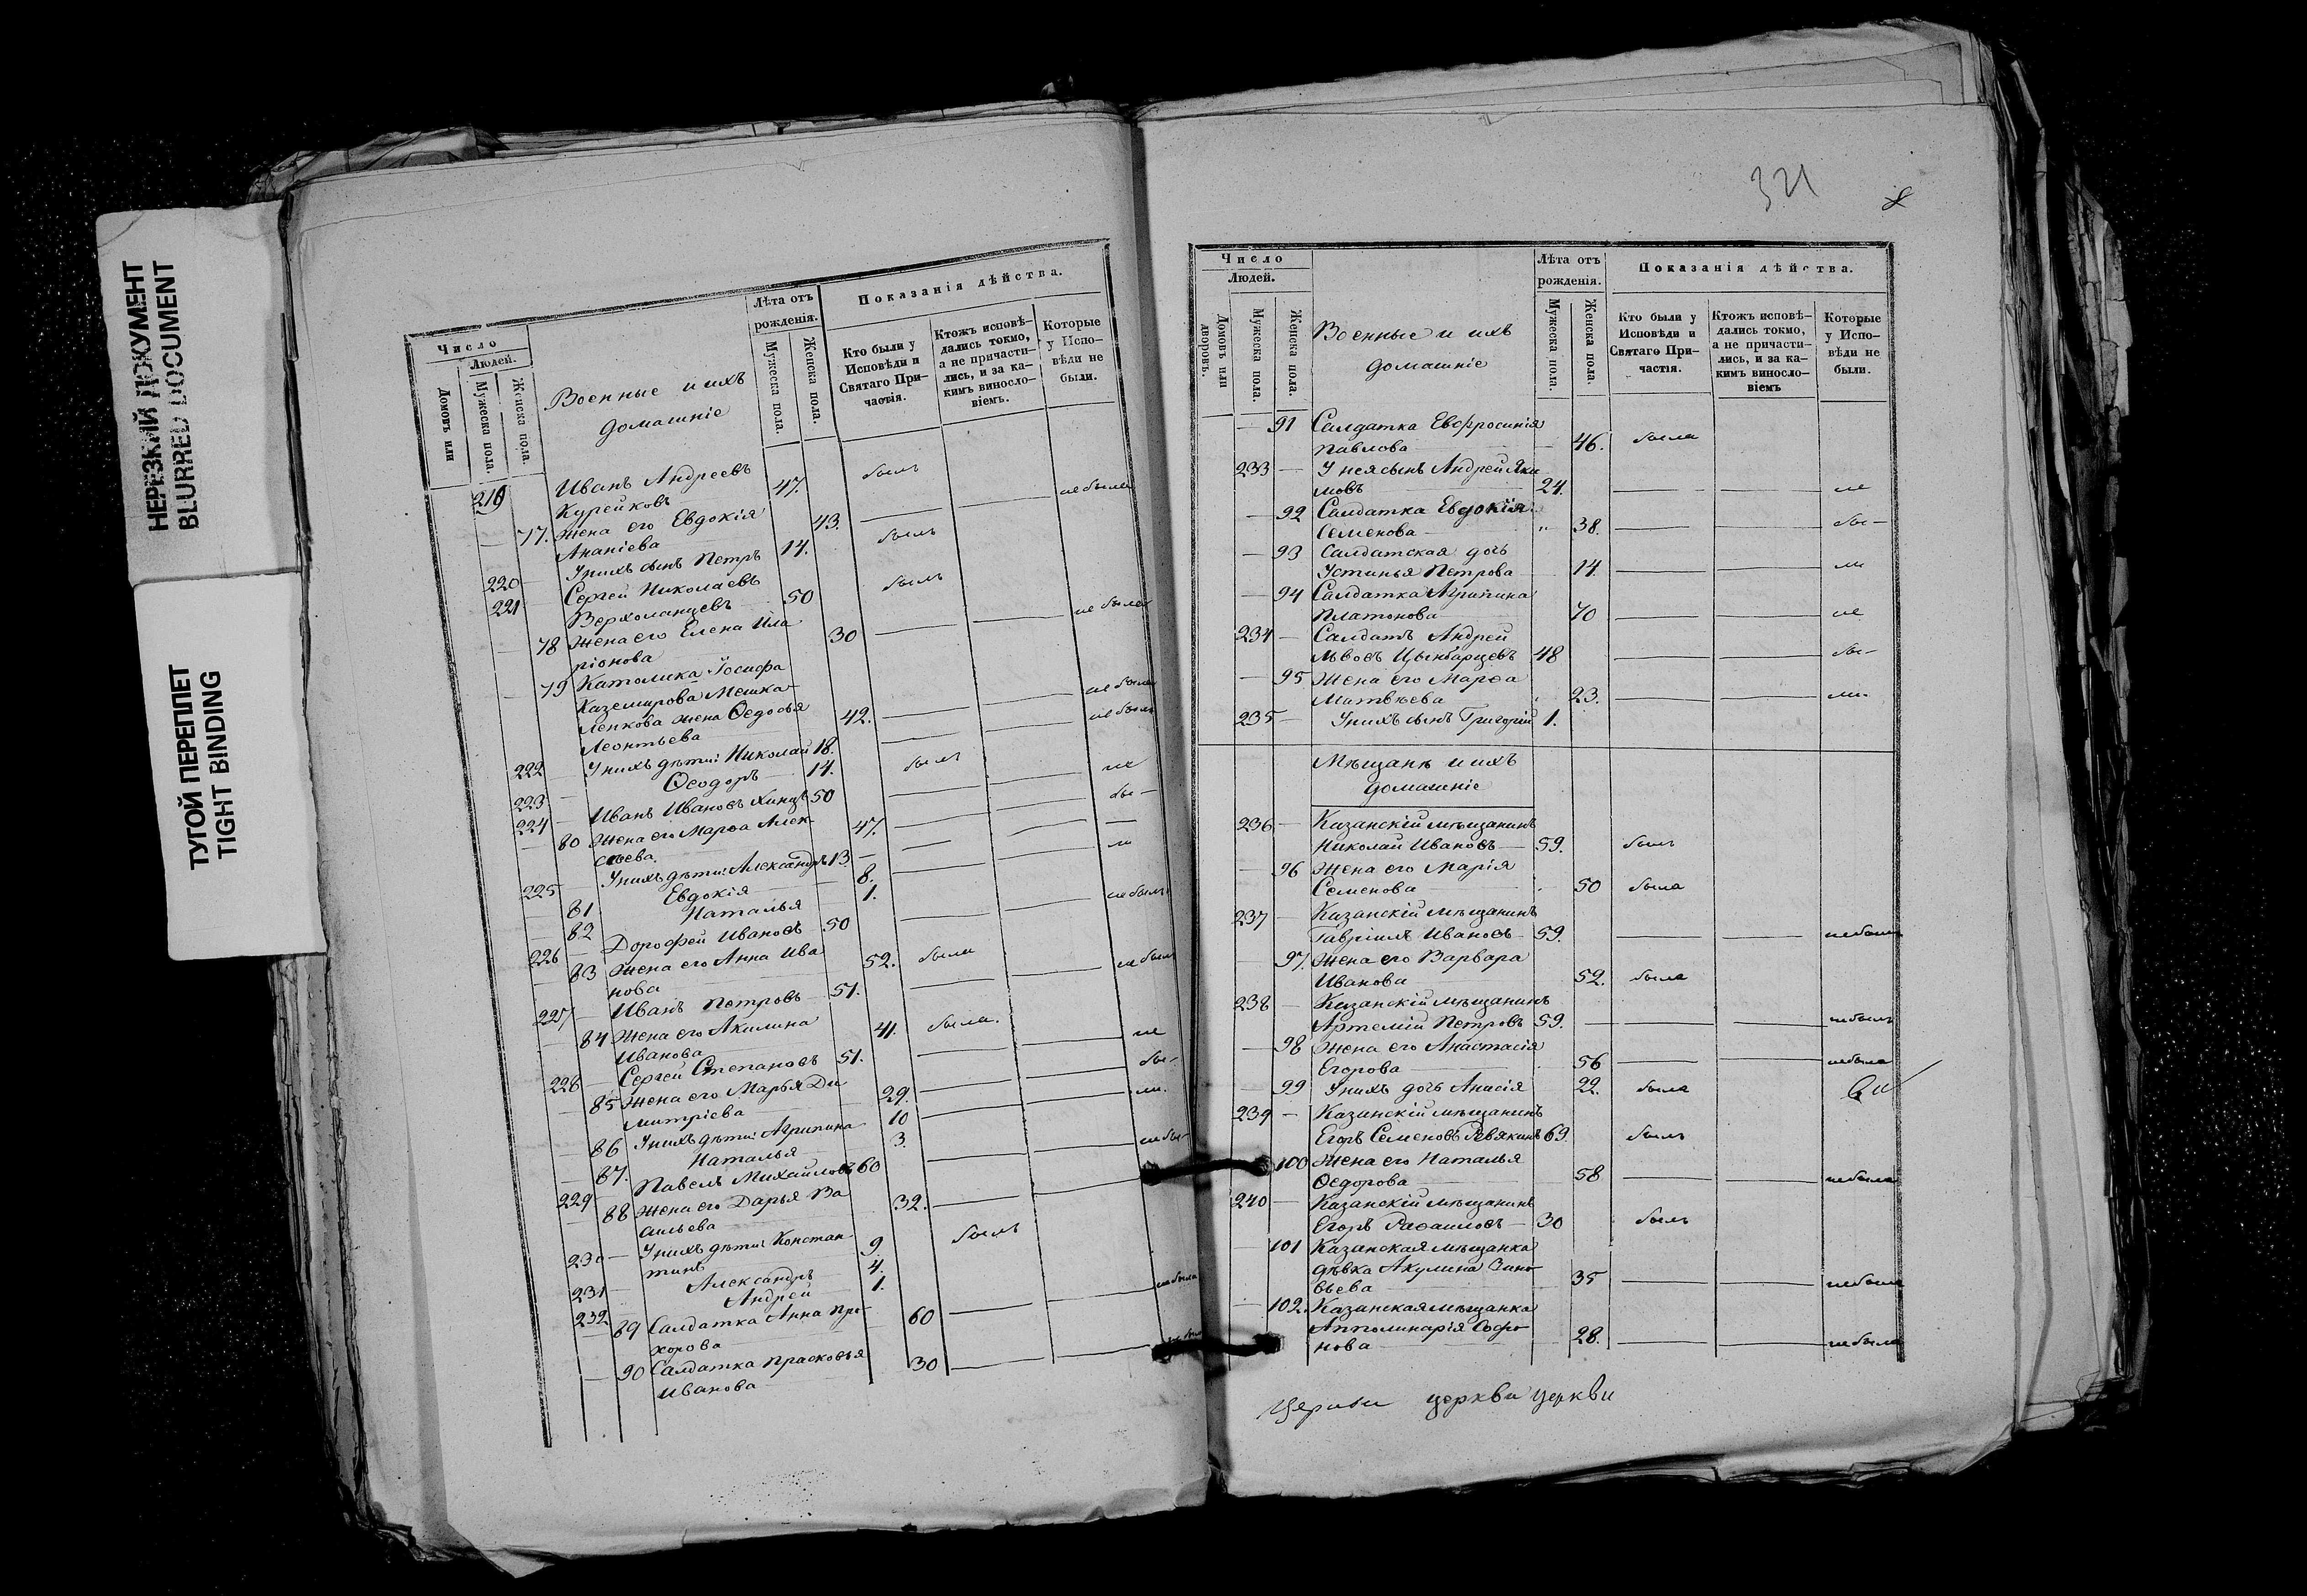 НЕРЕЗКИЙ ДОКУМЕНТ
BLURRED DOCUMENT
ТУГОЙ ПЕРЕПЛЕТ
TIGHT BINDING
Число
Людей.
Домовъ или
Мужеска пола.
Женска пола.
Военные и ихъ
домашніе
Лѣта отъ
рожденія.
Мужеска пола.
Женска пола.
Показанія дѣйства.
Кто были у
Исповѣди и
Святаго При-
частія.
Ктожъ исповѣ-
дались токмо,
а не причасти-
лись, и за ка-
кимъ виносло-
віемъ.
Которые
у Испо-
вѣди не
были.
219 Иванъ Андреевъ
Курейковъ 47. былъ
77. Жена его Евдокія
Ананіева 43. не была
220 У нихъ сынъ Петръ 14. былъ
221 Сергей Николаевъ
Верхоланцевъ 50 былъ
78 Жена его Елена Ила
ріонова 30 не была
79 Католика Іосифа
Каземирова Мешка-
ленкова жена Ѳедосья
Леонтьева 42. не была
222 У нихъ дѣти: Николай 18. не былъ
223 Ѳеодоръ 14. былъ
224 Иванъ Ивановъ 50 не
80 Жена его Марѳа Алек-
сѣева 47. бы-
225 У нихъ дѣти: Александръ 13
81 Евдокія 8. ли
82 Наталья 1.
226 Дорофей Ивановъ 50 не былъ
83 Жена его Анна Ива
нова 52. была
227 Иванъ Петровъ 51. не былъ
84 Жена его Акилина
Иванова 41. была.
228 Сергей Степановъ 51. не
85 Жена его Марья Ди
митріева 29. бы-
86 У нихъ дѣти: Агрипина 10 ли.
87. Наталья 3.
229 Павелъ Михайловъ 60 не бы-
88 Жена его Дарья Ва
сильева 32.
230 У нихъ дѣти: Констан-
тинъ 9. былъ
231 Александръ 4.
232 Андрей 1.
89 Салдатка Анна Про-
хорова 60 не была
90 Салдатка Прасковья
Иванова 30
321
Число
Людей.
Домовъ или
дворовъ.
Мужеска пола.
Женска пола.
Военные и ихъ
домашніе
Лѣта отъ
рожденія.
Мужеска пола.
Женска пола.
Показанія дѣйства.
Кто были у
Исповѣди и
Святаго При-
частія.
Ктожъ исповѣ-
дались токмо,
а не причасти-
лись, и за ка-
кимъ виносло-
віемъ
Которые
у Испо-
вѣди не
были.
91 Салдатка Евфросинія
Павлова 46. была
233 У нея сынъ Андрей Яки
мовъ 24. не
92 Салдатка Евдокія
Семенова „ 38. бы-
93 Салдатская дочь
Устинья Петрова 14. ли
94 Салдатка Агрипина
Платонова 70 не
234 Салдатъ Андрей
Львовъ Цынбарцевъ 48 бы-
95 Жена его Марѳа
Матвѣева 23. ли.
235 У нихъ сынъ Григорій 1.
Мѣщане и ихъ
домашніе
236 Казанскій мѣщанинъ
Николай Ивановъ 59. былъ
96 Жена его Марія
Семенова 50 была
237 Казанскій мѣщанинъ
Гавріилъ Ивановъ 59. не былъ
97. Жена его Варвара
Иванова 52. была
238 Казанскій мѣщанинъ
Артемій Петровъ 59. не былъ
98 Жена его Анастасія
Егорова 56 не была
99 У нихъ дочь Анисія 22. была
239 Казанскій мѣщанинъ
Егоръ Семеновъ Ревякинъ 69 былъ
100 Жена его Наталья
Ѳедорова 58 не была
240 Казанскій мѣщанинъ
Егоръ Рафаиловъ 30 былъ
101 Казанская мѣщанка
дѣвка Акулина Зино-
вьева 35 не была
102. Казанская мѣщанка
Апполинарія Софо-
нова 28. не была
церкви церкви